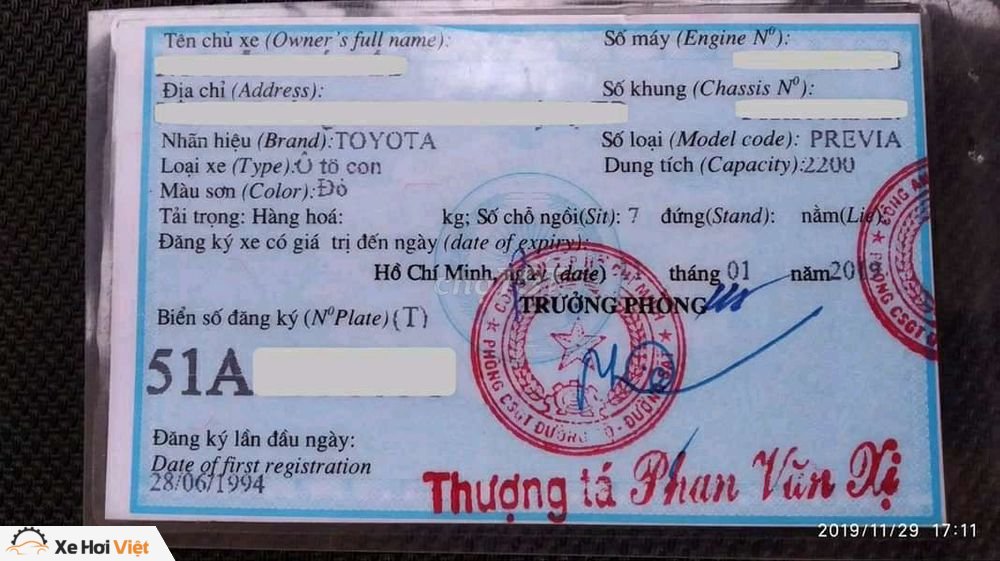 Tên chủ xe (Owner's full name):
Số máy (Engine Nº):
Địa chỉ (Address):
Số khung (Chassis Nº):
Nhãn hiệu (Brand): TOYOTA
Số loại (Model code): PREVIA
Loại xe (Type): Ô tô con
Dung tích (Capacity): 2200
Màu sơn (Color): Đỏ
Tải trọng: Hàng hoá: kg; Số chỗ ngồi(Sit): 7 đứng(Stand): nằm(Lie):
Đăng ký xe có giá trị đến ngày (date of expiry):
Hồ Chí Minh, ngày (date) tháng 01 năm 2019
TRƯỞNG PHÒNG
Biển số đăng ký (NºPlate) (T)
51A
PHÒNG CSGT ĐƯỜNG BỘ-ĐƯỜNG SẮT
CÔNG AN
PHÒNG CSGT
Đăng ký lần đầu ngày:
Date of first registration
28/06/1994
Thượng tá Phan Văn Xị
2019/11/29 17:11
Xe Hơi Việt